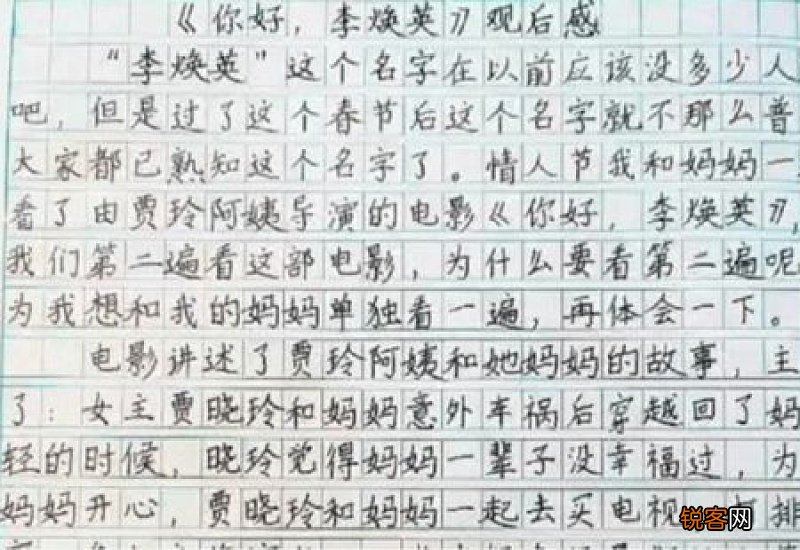 《你好，李焕英》观后感
“李焕英”这个名字在以前应该没多少人
吧，但是过了这个春节后这个名字就不那么普
大家都已熟知这个名字了。情人节我和妈妈一
看了由贾玲阿姨导演的电影《你好，李焕英》，
我们第二遍看这部电影，为什么要看第二遍呢
为我想和我的妈妈单独看一遍，再体会一下。
电影讲述了贾玲阿姨和她妈妈的故事，主
了：女主贾晓玲和妈妈意外车祸后穿越回了妈
轻的时候，晓玲觉得妈妈一辈子没幸福过，为
妈妈开心，贾晓玲和妈妈一起去买电视 排
锐客网